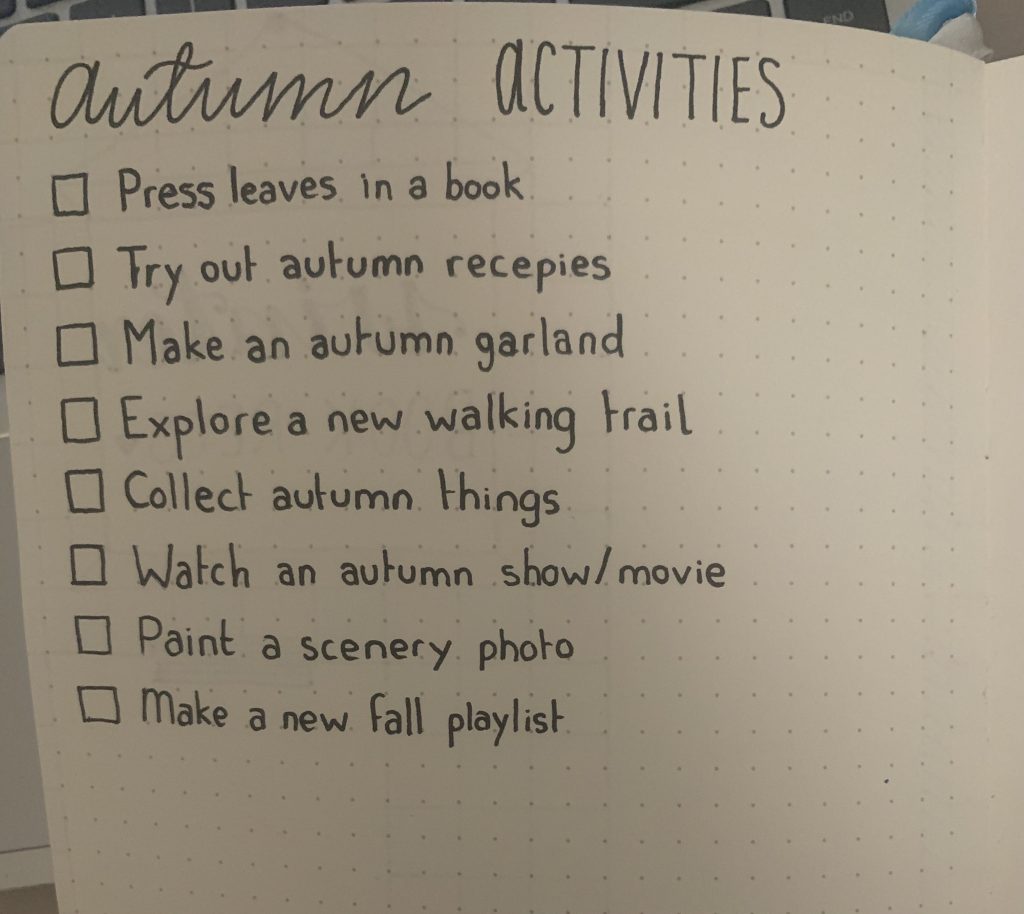 END
autumn ACTIVITIES
Press leaves in a book
Try out autumn recepies
Make an autumn garland
Explore a new walking trail
Collect autumn things
Watch an autumn show/movie
Paint a scenery photo
Make a new fall playlist